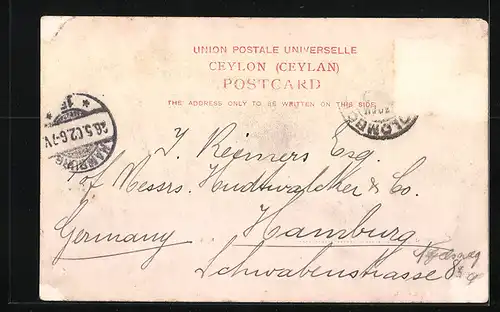 UNION POSTALE UNIVERSELLE
CEYLON (CEYLAN)
POSTCARD
THE ADDRESS ONLY TO BE WRITTEN ON THIS SIDE
HAMBURG
26.5.02.6-7V.
* 1F *
COLOMBO
J. Reimers Esq.
of Messrs. Hudtwalcker & Co.
Hamburg
Germany
Schwabenstrasse